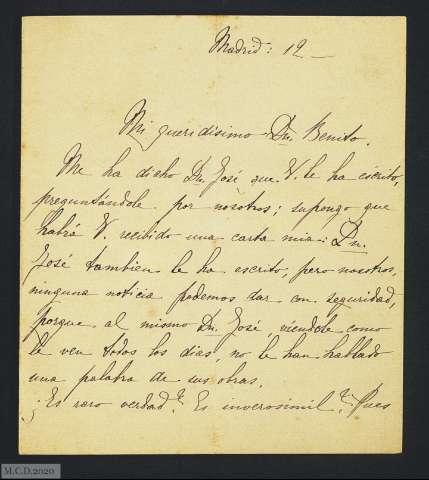 Madrid: 12 —
Mi queridisimo Dn. Benito.
Me ha dicho Dn. José que V. le ha escrito,
preguntándole por nosotros; supongo que
habrá V. recibido una carta mia: Dn.
José tambien le ha escrito, pero nosotros,
ninguna noticia podemos dar con seguridad,
porque al mismo Dn. José, viendole como
le ven todos los dias, no le han hablado
una palabra de sus obras.
¿Es raro verdad? Es inverosimil? Pues
M.C.D.2020